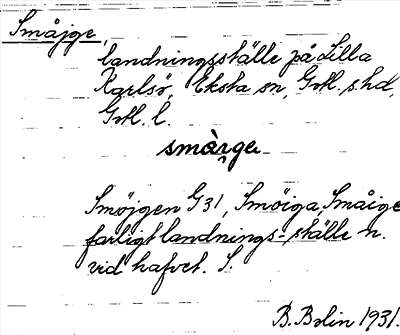 Småjge,
landningsställe på Lilla
Karlsö, Eksta sn, Gotl. s. hd,
Gotl. l.
Smöjgen G31, Smöiga, Småige
farligt landnings-ställe n.
vid hafvet. S.
B. Bolin 1931.